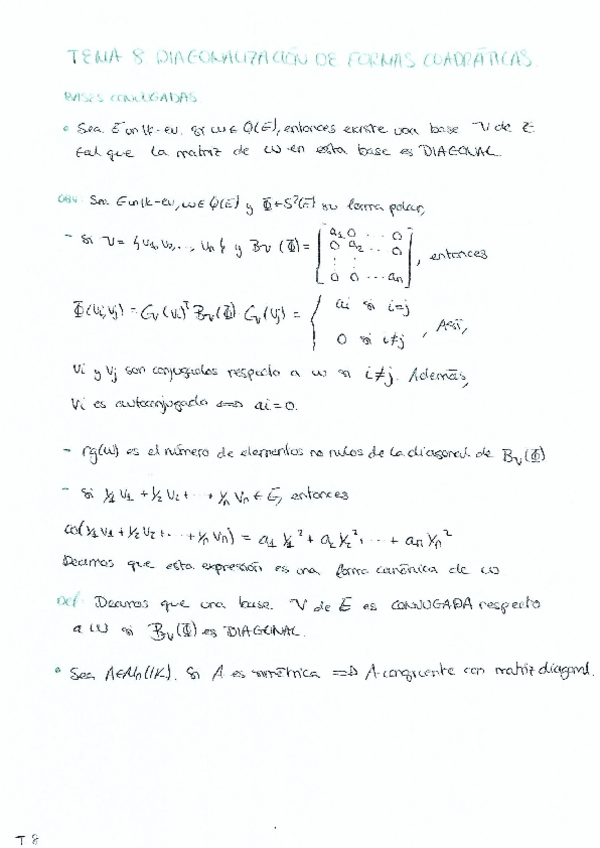 TEMA 8. DIAGONALIZACIÓN DE FORMAS CUADRÁTICAS.
BASES CONJUGADAS
• Sea E un K-ev. Si ω ∈ Q(E), entonces existe una base V de E
tal que la matriz de ω en esta base es DIAGONAL.
OBV: Sea E un K-ev, ω ∈ Q(E) y Φ ∈ S²(E) su forma polar,
- Si V = {v1, v2, ..., vn} y B_V(Φ) = [a1 0 ... 0; 0 a2 ... 0; ⋮ ⋮; 0 0 ... an], entonces
Φ(vi, vj) = C_V(vi)^T B_V(Φ) · C_V(vj) = { ai si i=j; 0 si i≠j, Así,
vi y vj son conjugados respecto a ω si i≠j. Además,
vi es autoconjugado ⟺ ai = 0.
- rg(ω) es el número de elementos no nulos de la diagonal de B_V(Φ)
- Si y1 v1 + y2 v2 + ... + yn vn ∈ E, entonces
ω(y1 v1 + y2 v2 + ... + yn vn) = a1 y1² + a2 y2² + ... + an yn²
Decimos que esta expresión es una forma canónica de ω
Def: Decimos que una base V de E es CONJUGADA respecto
a ω si B_V(Φ) es DIAGONAL.
• Sea A ∈ Mn(K). Si A es simétrica ⟹ A congruente con matriz diagonal.
T 8